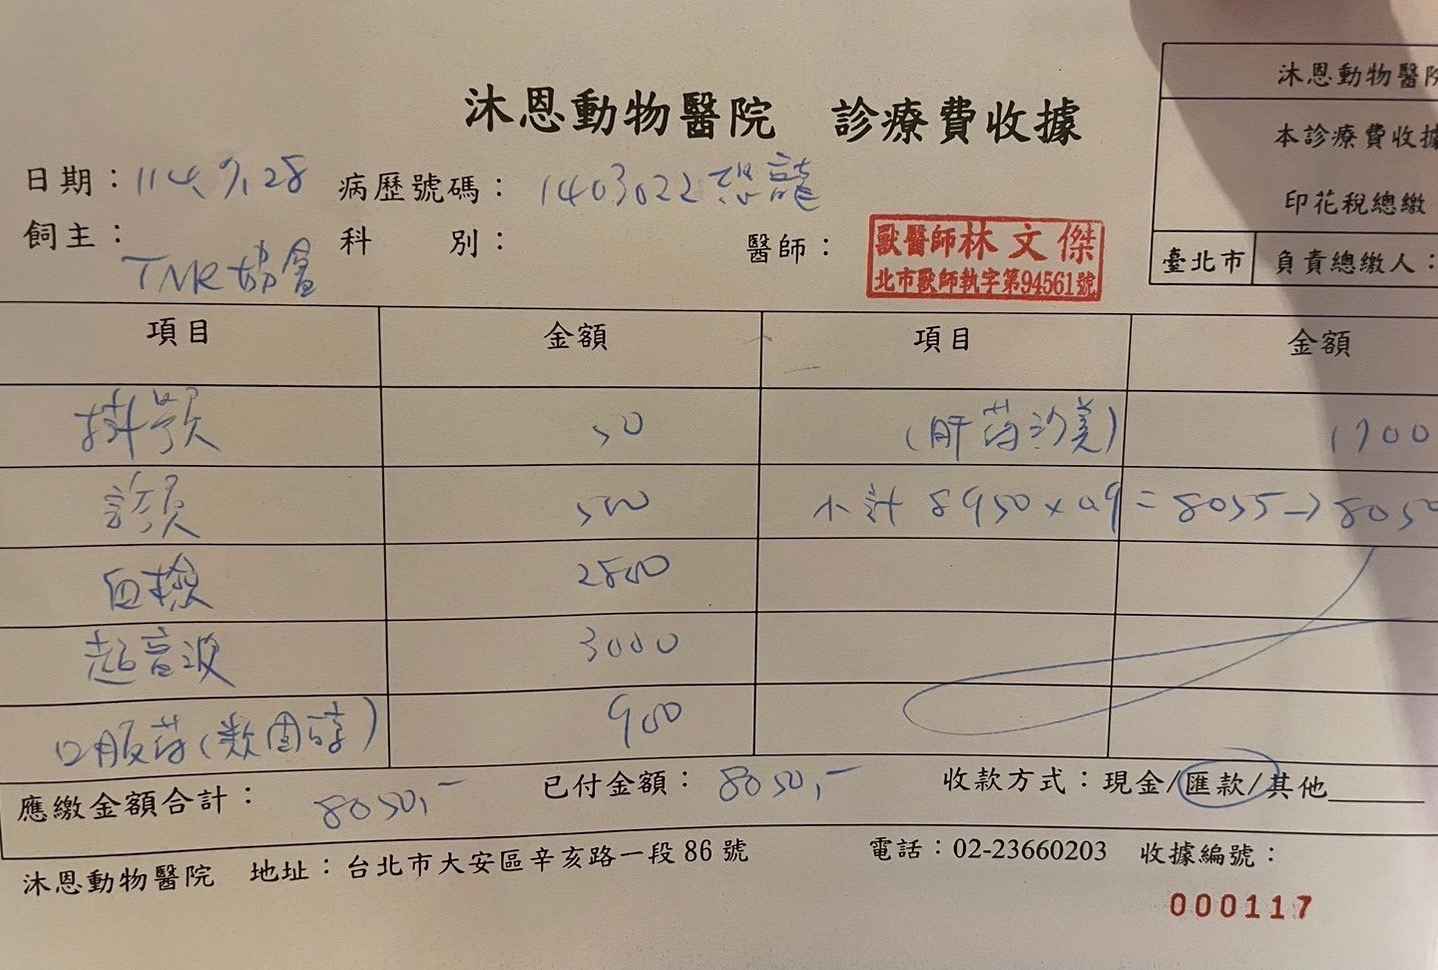 沐恩動物醫院 診療費收據
沐恩動物醫院
本診療費收據
印花稅總繳
臺北市 負責總繳人：
日期：114.9.28 病歷號碼：1403022 恐龍
飼主：TNR協會 科別： 醫師：
獸醫師林文傑
北市獸師執字第94561號
項目 金額 項目 金額
掛號 50 (肝茵沙美) 1700
診費 500 小計 8950 x 0.9 = 8055 → 8050
血檢 2800
超音波 3000
口服药 900
應繳金額合計：8050,- 已付金額：8050,- 收款方式：現金/匯款/其他
沐恩動物醫院 地址：台北市大安區辛亥路一段 86 號 電話：02-23660203 收據編號：
000117